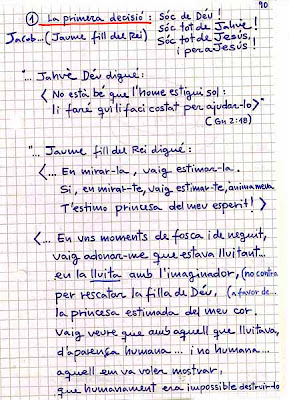 90
① La primera decisió: Sóc de Déu!
Sóc tot de Jahvè!
Jacob... (Jaume fill del Rei) Sóc tot de Jesús,
i per a Jesús!
"... Jahvè Déu digué:
< No està bé que l'home estigui sol:
li faré qui li faci costat per ajudar-lo >"
(Gn 2:18)
"... Jaume fill del Rei digué:
<... En mirar-la, vaig estimar-la.
Si, en mirar-te, vaig estimar-te, ànima meva
T'estimo princesa del meu esperit! >
<... En uns moments de fosca i de neguit,
vaig adonar-me que estava lluitant...
en la lluita amb l'imaginador, (no contra
per rescatar la filla de Déu, (a favor de...
la princesa estimada del meu cor.
Vaig veure que amb aquell que lluitava,
d'aparença humana... i no humana...
aquell em va voler mostrar,
que humanament era impossible destruir-lo